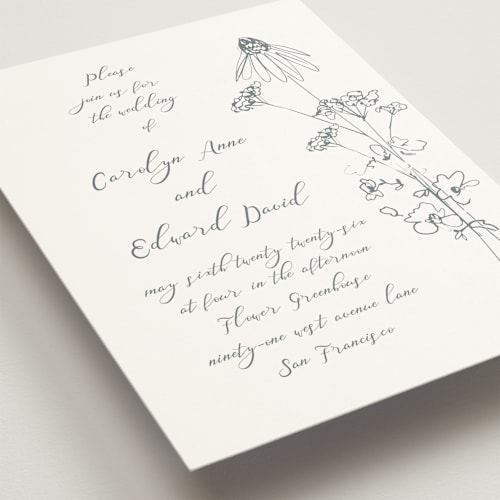 Please
join us for
the wedding
of
Carolyn Anne
and
Edward David
may sixth twenty twenty-six
at four in the afternoon
Flower Greenhouse
ninety-one west avenue lane
San Francisco